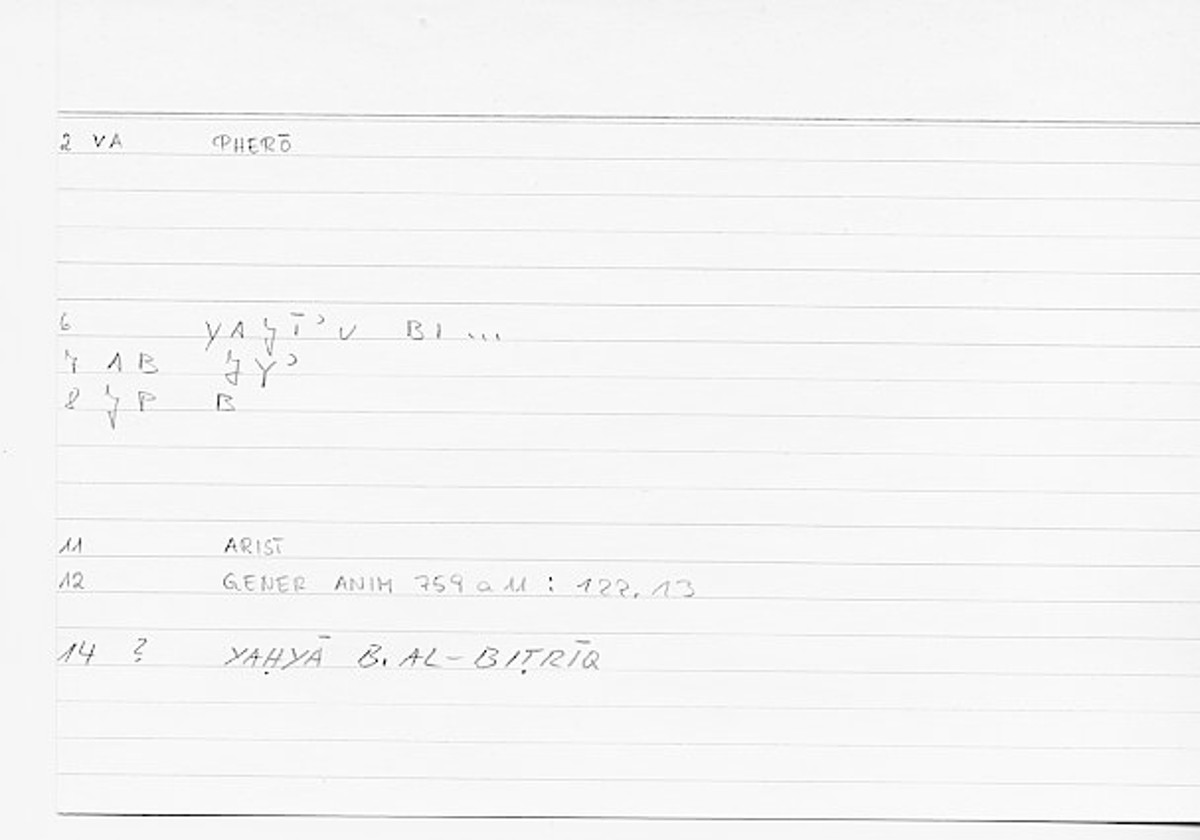 2 VA PHERŌ
6 YAǦĪʾU BI ...
7 AB ǦYʾ
8 ǦP B
11 ARIST
12 GENER ANIM 759 a 11 : 122.13
14 ? YAḤYĀ B. AL-BIṬRĪQ